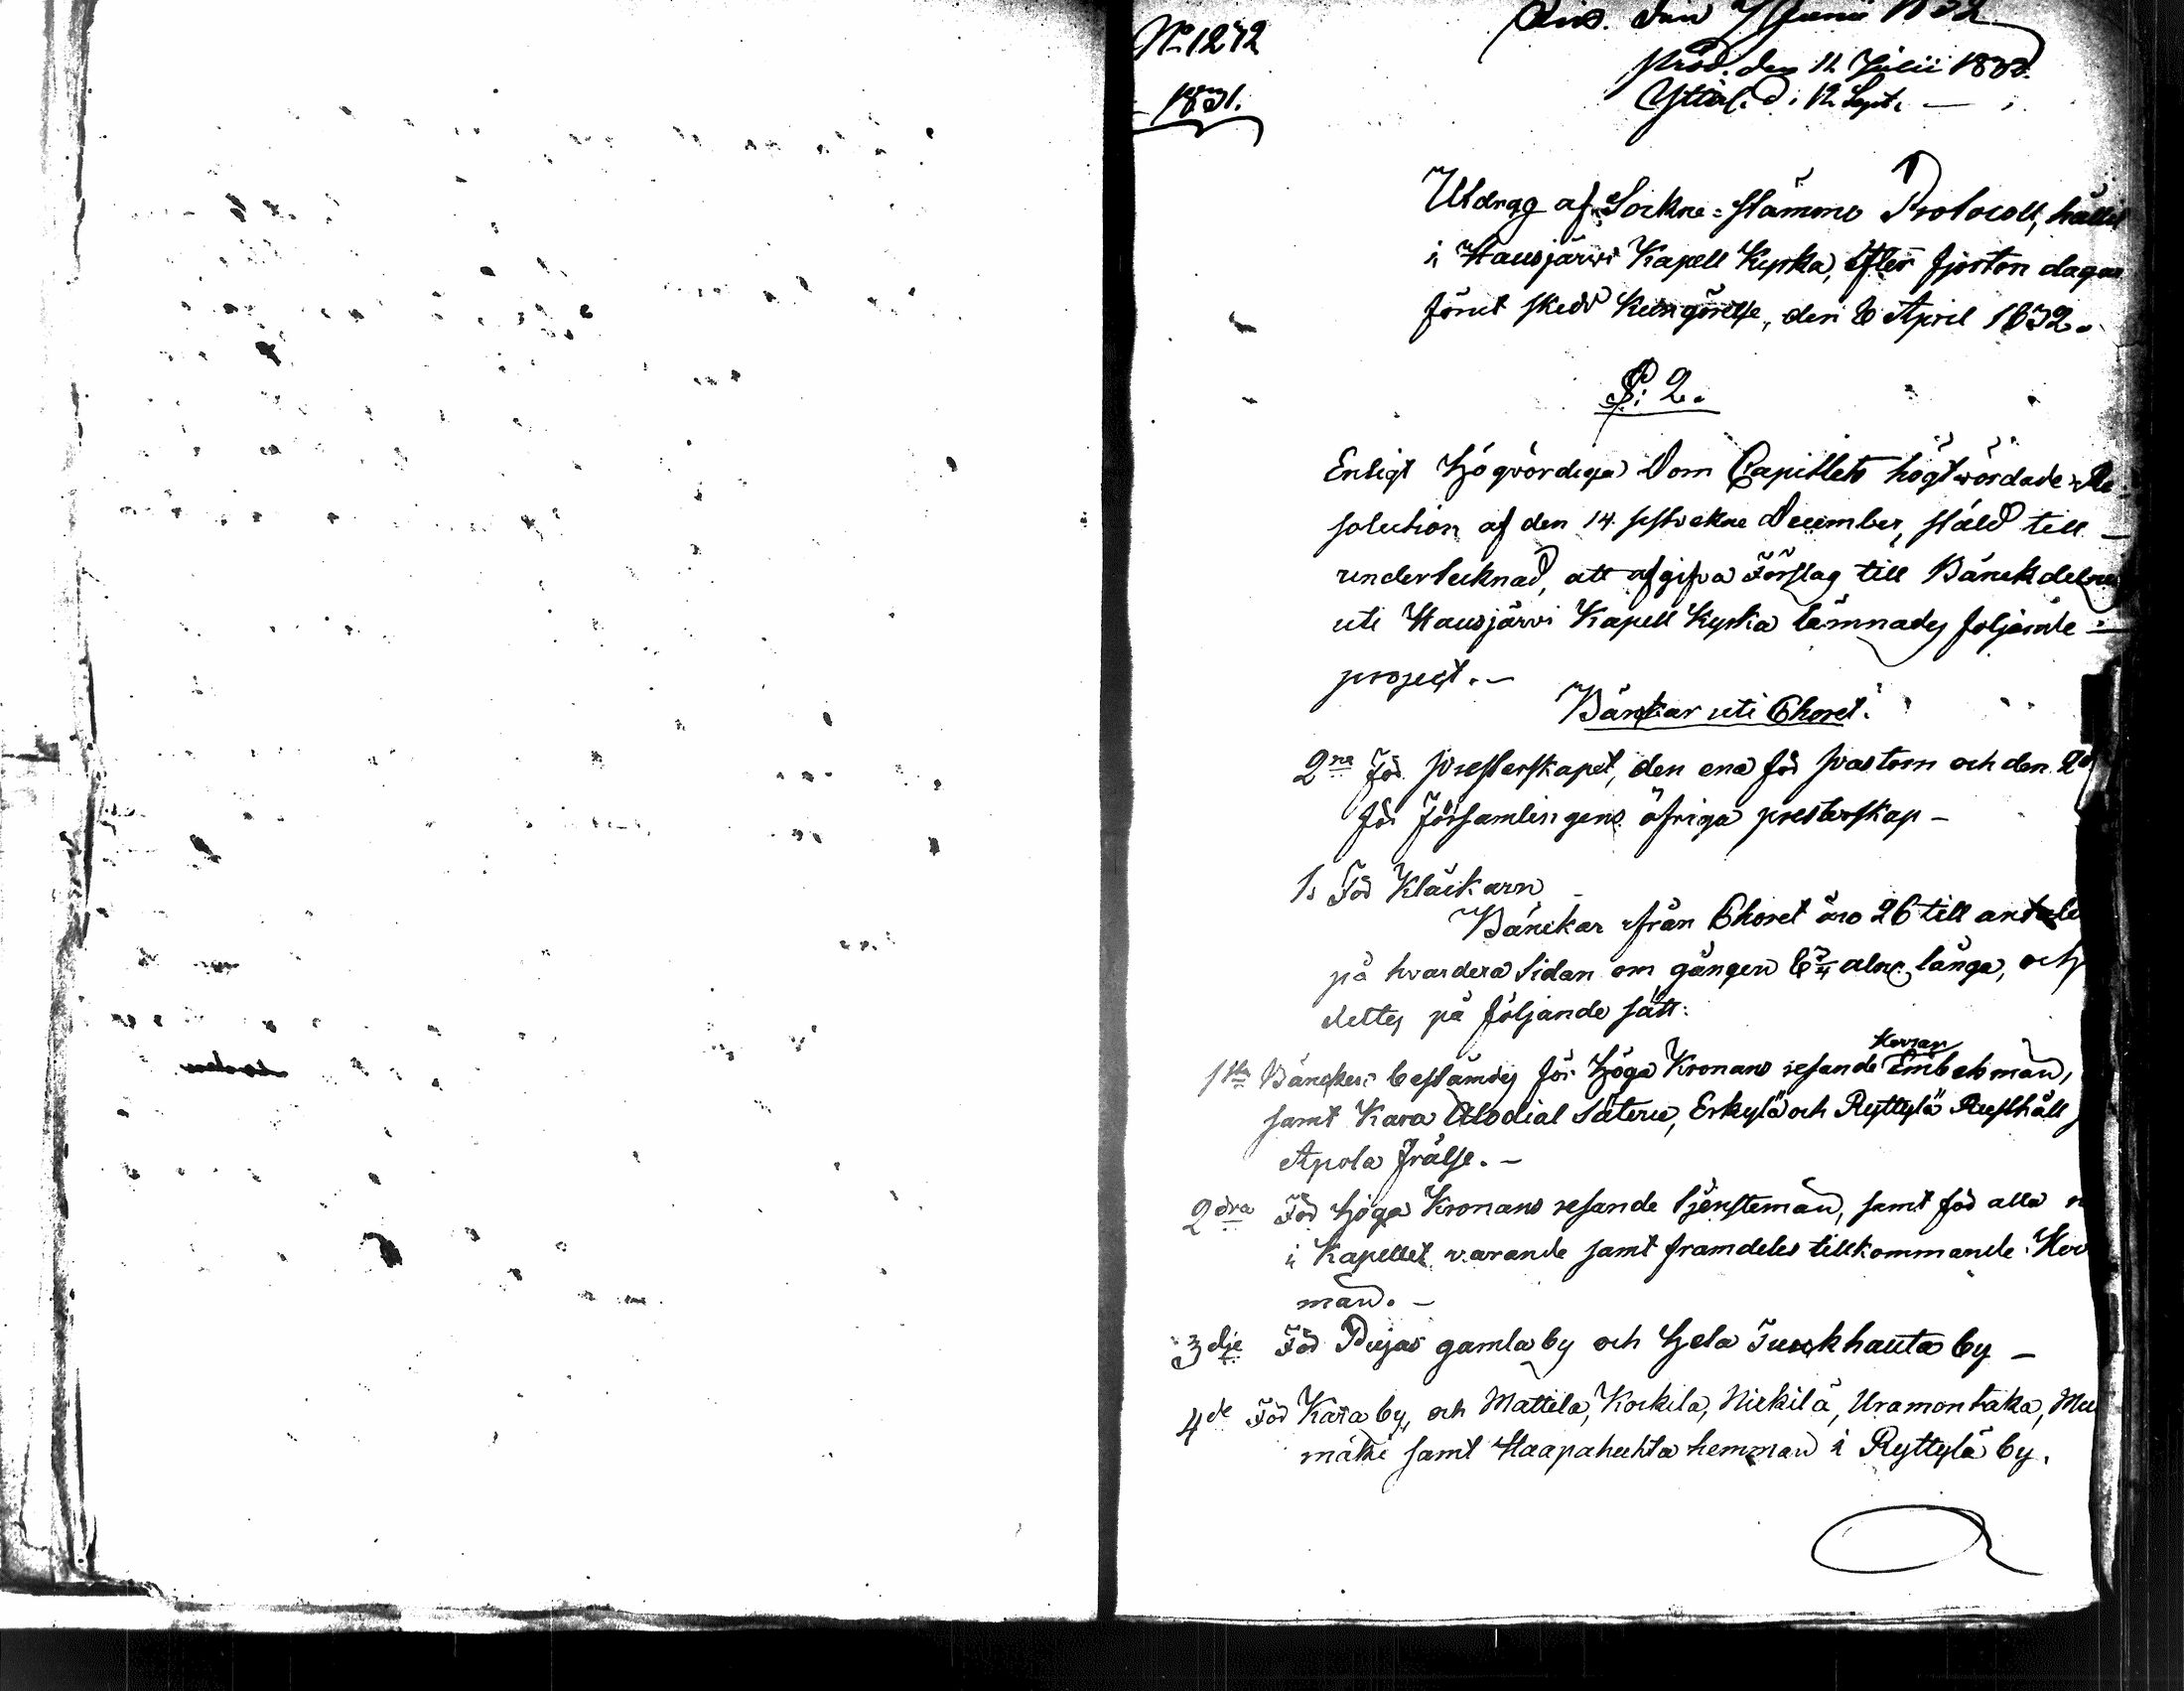 No 1272
1831.
den 7 Junii 1832
prod. den 11 Julii 1832.
d: 12 Sept.
Utdrag af Sockne-stämmo Protocoll, hållit
i Hausjärvi Kapell Kyrka, efter fjorton dagar
förut skedd kungörelse, den 8 April 1832.
§: 2.
Enligt Högvördiga Dom Capitlets högtvördade Re-
solution af den 14 sistvekne December, stäld till
undertecknad, att afgifva Förslag till Bänckdelning
uti Hausjärvi Kapell Kyrka lämnades följande
project.-
Bänkar uti Choret.
2ne För presterskapet, den ena för pastorn och den 2dra
för församlingens öfriga presterskap -
1. För Kläckarn
Bänckar från Choret äro 26 till antalet
på hvardera sidan om gången 6 3/4 alnar långa, och
dettes på följande sätt:
1sta Bäncken bestämdes för Höga Kronans resande Herrar Embetsmän,
samt Kara Allodial Säterie, Erkylä och Ryttylä Rusthåll
Apola frälse. -
2dra För Höga Kronans resande tjenstemän, samt för alla n
i Kapellet varande samt framdeles tillkommande Her
män. -
3dje För Pujas gamla by och hela Turkhauta by -
4de För Kara by, och Mattila, Kockila, Nickilä, Uramontaka, Mu
mäki samt Haapahuhta hemman i Ryttylä by.